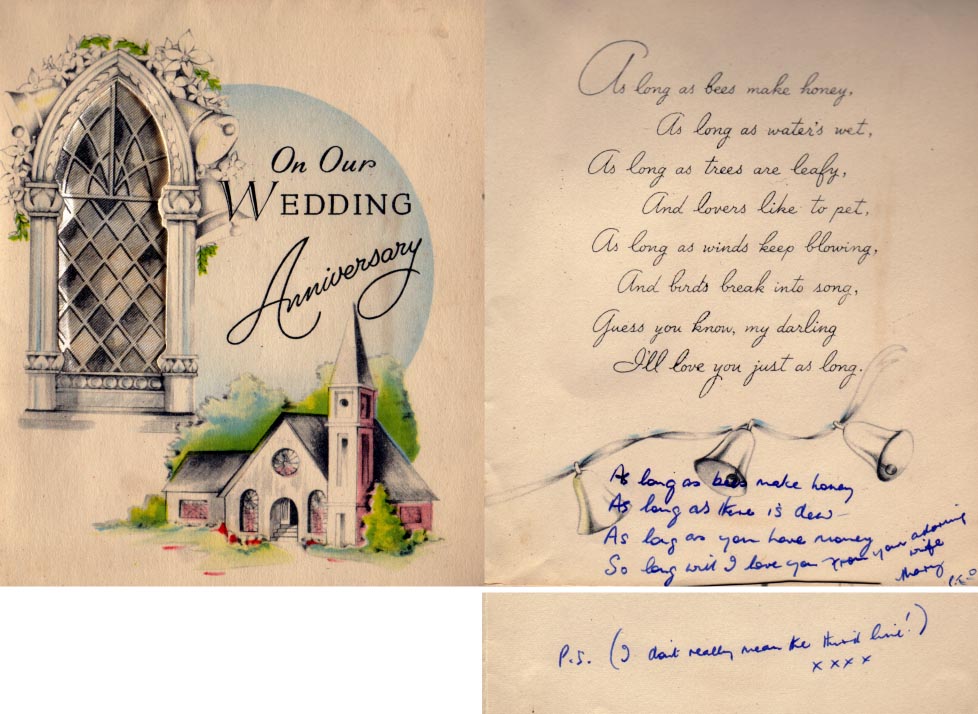 On Our
WEDDING
Anniversary
As long as bees make honey,
As long as water's wet,
As long as trees are leafy,
And lovers like to pet,
As long as winds keep blowing,
And birds break into song,
Guess you know, my darling
I'll love you just as long.
As long as bees make honey
As long as there is dew—
As long as you have money
So long will I love you from your adoring
wife
Mary
P.T.O
P.S. (I don't really mean the third line!)
x x x x